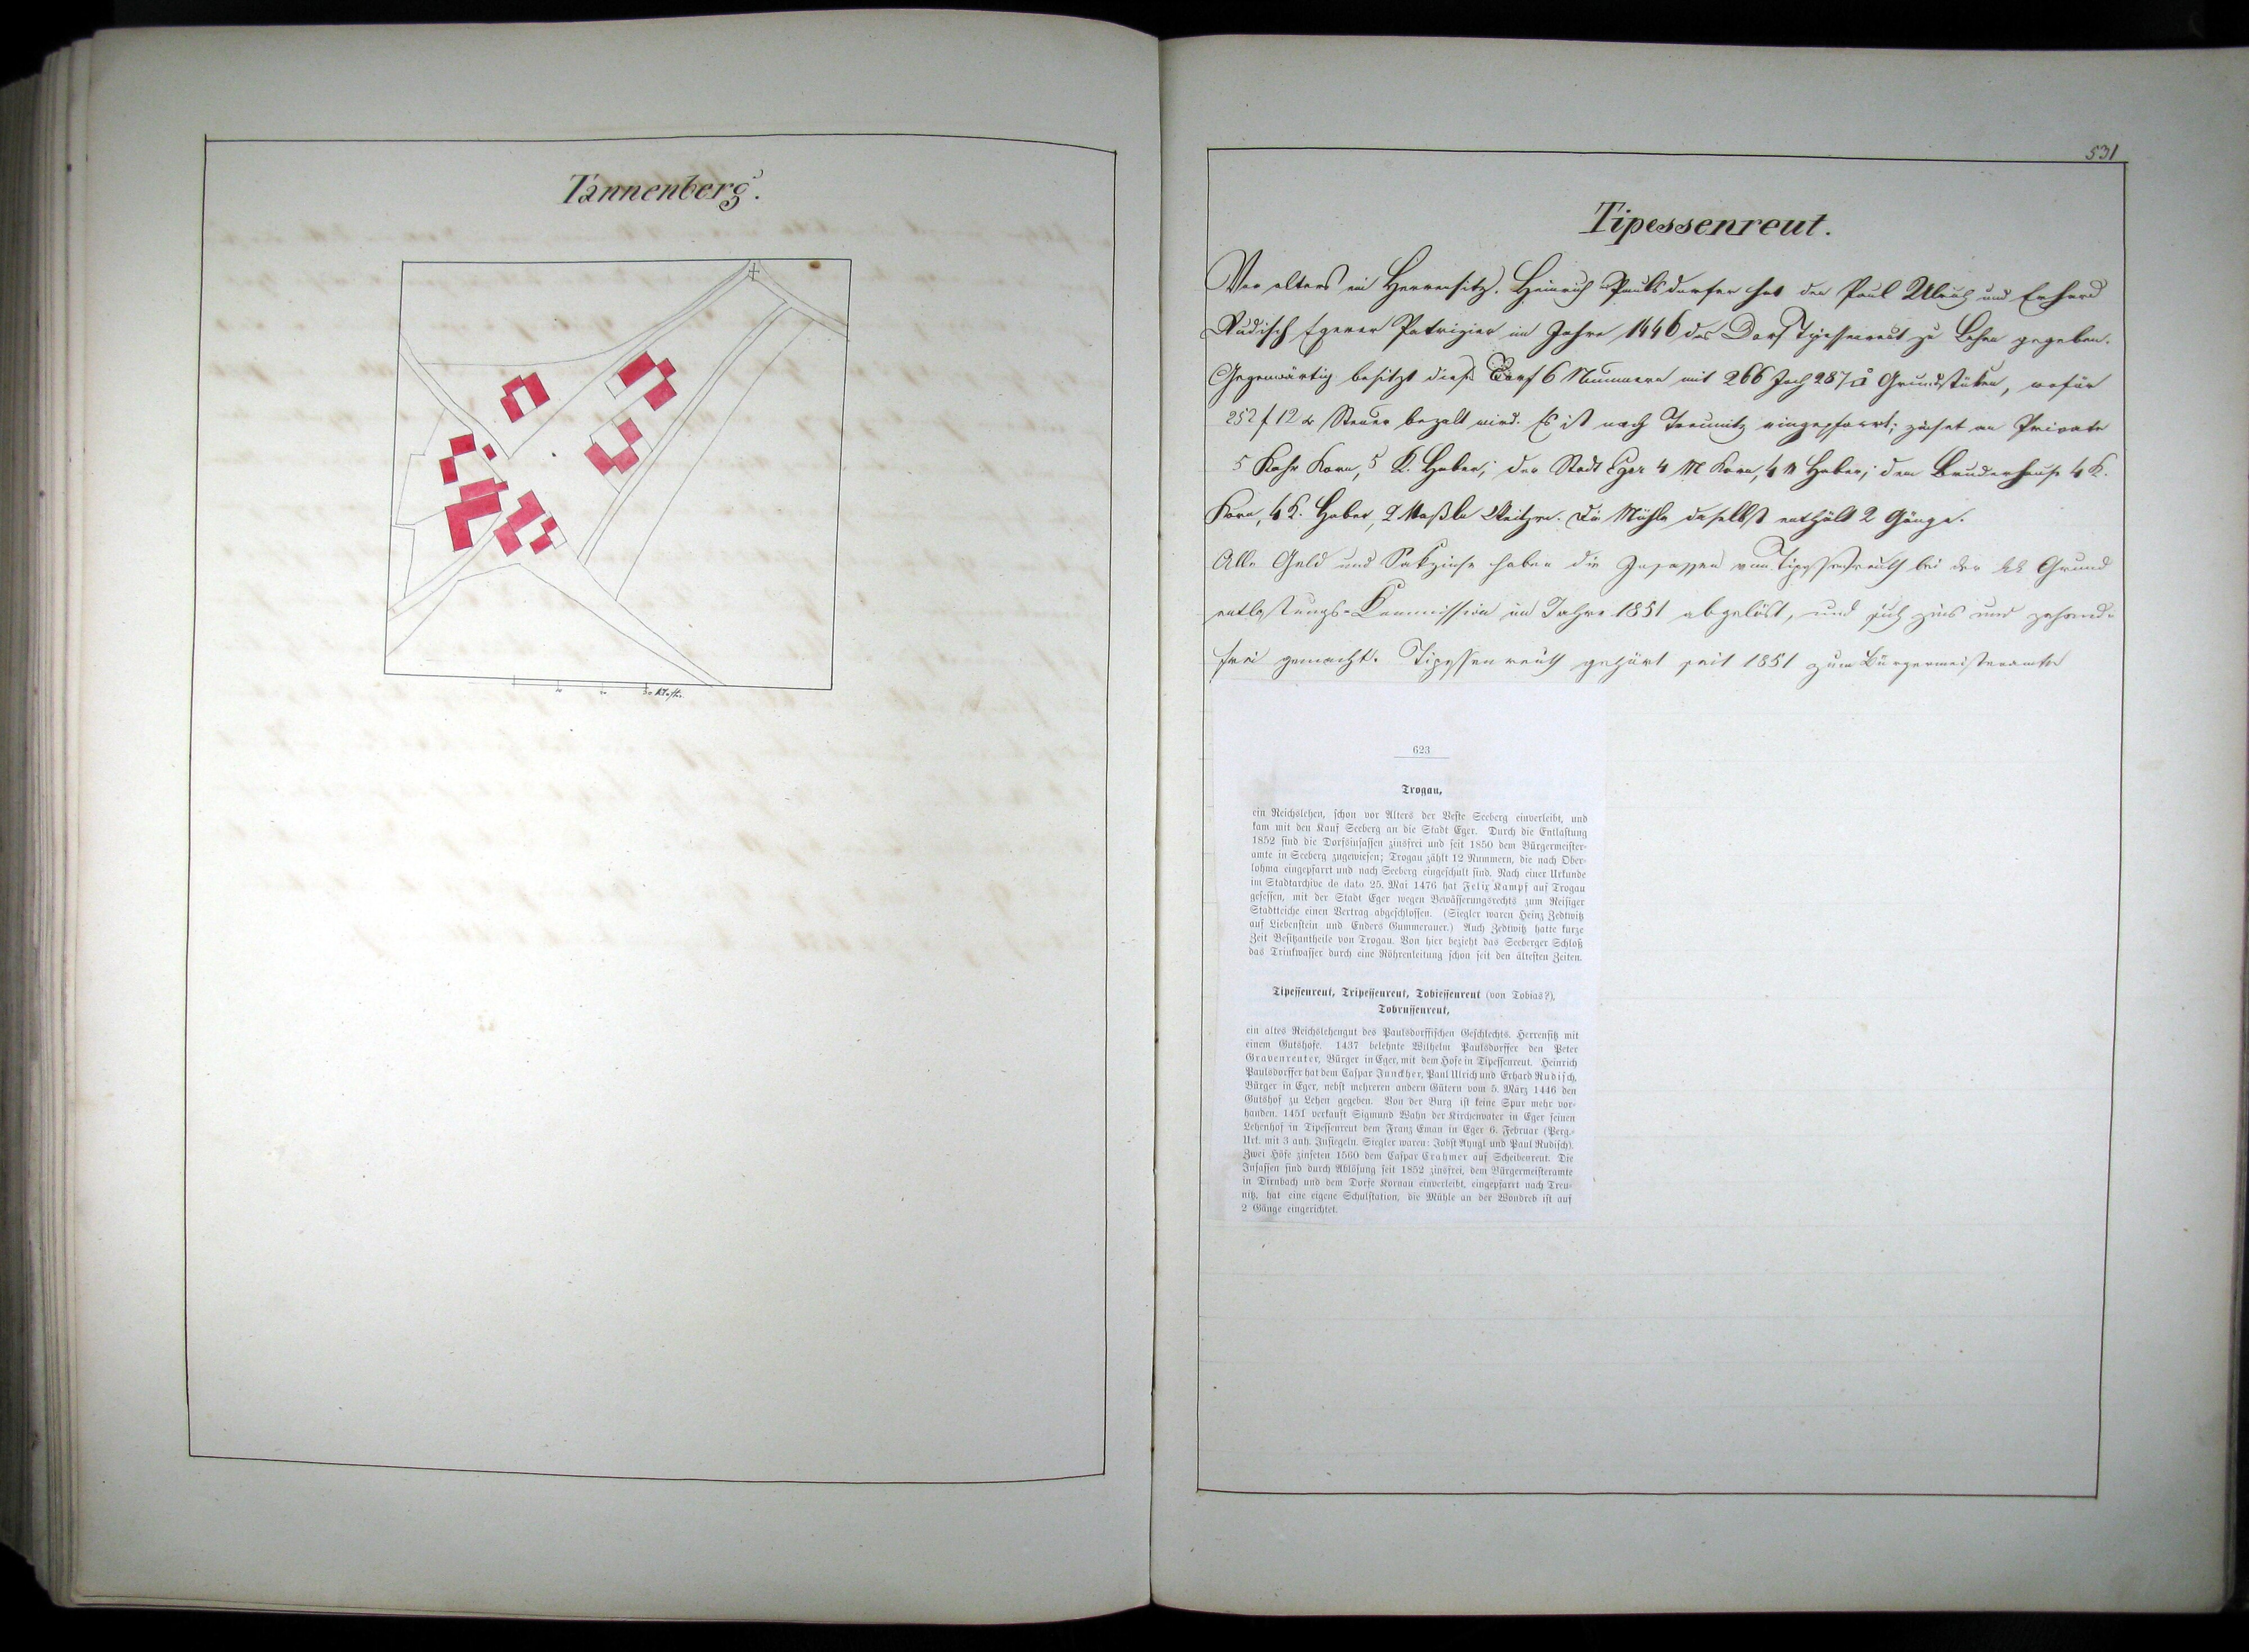 Tannenberg.
10 20 30 Klaftr.
531
Tipessenreut.
Vor alters ein Herrensitz. Heinrich Paulsdorfer hat den Paul Ulrich und Erhard
Rudisch Egerer Patrizier im Jahre 1446 das Dorf Tipessenreut zu Lehen gegeben.
Gegenwärtig besitzt dieses Dorf 6 Nummern mit 266 Joch 287 Grundstüken, wofür
252 f 12 Steuer bezalt wird. Es ist nach Treunitz eingepfarrt; zinset an Private
5 Kahr Korn, 5 K. Haber; der Stadt Eger 4 M Korn, 4 M Haber; dem Bruderhause 4 K.
Korn, 4 K. Haber, 2 Maßla Weitzen. Die Mühle daselbst enthält 2 Gänge.
Alle Geld und Sakzinse haben die Insassen von Tipessenreuth bei der kk Grund
entlastungs-Commission im Jahre 1851 abgelöst, und sich zins und zehend-
frei gemacht. Tipessenreuth gehört seit 1851 zum Bürgermeisteramte
623
Trogau,
ein Reichslehen, schon vor Alters der Veste Seeberg einverleibt, und
kam mit den Kauf Seeberg an die Stadt Eger. Durch die Entlastung
1852 sind die Dorfsinsassen zinsfrei und seit 1850 dem Bürgermeister-
amte in Seeberg zugewiesen; Trogau zählt 12 Nummern, die nach Ober-
lohma eingepfarrt und nach Seeberg eingeschult sind. Nach einer Urkunde
im Stadtarchive de dato 25. Mai 1476 hat Felix Kampf auf Trogau
gesessen, mit der Stadt Eger wegen Bewässerungsrechts zum Reisiger
Stadtteiche einen Vertrag abgeschlossen. (Siegler waren Heinz Zedtwitz
auf Liebenstein und Enders Gummerauer.) Auch Zedtwitz hatte kurze
Zeit Besitzantheile von Trogau. Von hier bezieht das Seeberger Schloß
das Trinkwasser durch eine Röhrenleitung schon seit den ältesten Zeiten.
Tipessenreut, Tripessenreut, Tobiessenreut (von Tobias?),
Tobrussenreut,
ein altes Reichslehengut des Paulsdorffischen Geschlechts. Herrensitz mit
einem Gutshofe. 1437 belehnte Wilhelm Paulsdorffer den Peter
Gravenreuter, Bürger in Eger, mit dem Hofe in Tipessenreut. Heinrich
Paulsdorffer hat dem Caspar Junckher, Paul Ulrich und Erhard Rudisch,
Bürger in Eger, nebst mehreren andern Gütern vom 5. März 1446 den
Gutshof zu Lehen gegeben. Von der Burg ist keine Spur mehr vor-
handen. 1451 verkauft Sigmund Wahn der Kirchenvater in Eger seinen
Lehenhof in Tipessenreut dem Franz Eman in Eger 6. Februar (Perg.-
Urk. mit 3 anh. Insiegeln. Siegler waren: Jobst Ayngl und Paul Rudisch).
Zwei Höfe zinseten 1560 dem Caspar Crahmer auf Scheibenreut. Die
Insassen sind durch Ablösung seit 1852 zinsfrei, dem Bürgermeisteramte
in Dirnbach und dem Dorfe Kornau einverleibt, eingepfarrt nach Treu-
nitz, hat eine eigene Schulstation, die Mühle an der Wondreb ist auf
2 Gänge eingerichtet.